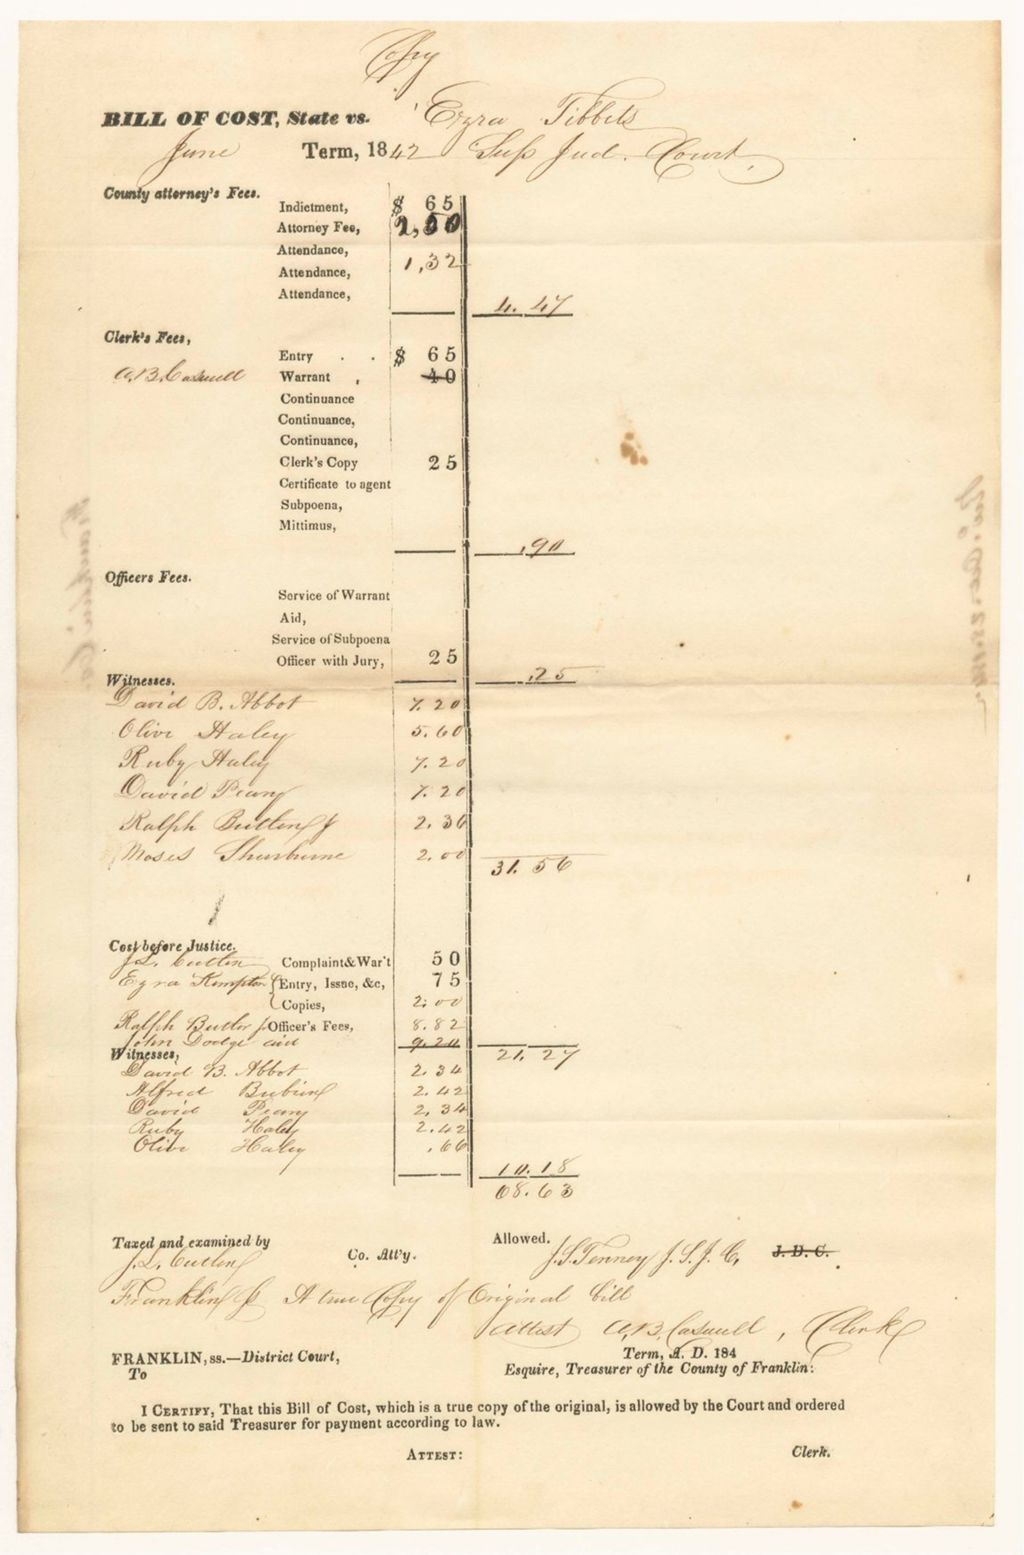 Copy
BILL OF COST, State vs. Ezra Tibbets
June Term, 1842 Sup Jud. Court,
County attorney's Fees.
Indictment, $ 65
Attorney Fee, 2,50
Attendance,
Attendance, 1,32
Attendance,
4.47
Clerk's Fees,
Entry . . $ 65
A.B. Caswell Warrant , 40
Continuance
Continuance,
Continuance,
Clerk's Copy 25
Certificate to agent
Subpoena,
Mittimus,
,90
Officers Fees.
Service of Warrant
Aid,
Service of Subpoena
Officer with Jury, 25
,25
Witnesses.
David B. Abbot 7.20
Olive Haley 5.60
Ruby Haley 7.20
David Peary 7.20
Ralph Butler Jr 2.36
Moses Shurburne 2.00
31.56
Cost before Justice.
J.L. Cutler Complaint & War't 50
Ezra Kempton Entry, Issue, &c, 75
Copies, 2.00
Ralph Butler Jr Officer's Fees, 8.82
John Dodge aid 9.20
21.27
Witnesses,
David B. Abbot 2.34
Alfred 2.42
David Peary 2,34
Ruby Haley 2.42
Olive Haley .66
10.18
68.63
Taxed and examined by Allowed.
J.L. Cutler Co. Att'y. J.S. Tenney J.S.J.C. J. D. C.
Franklin ss A true Copy of Original bill
Attest A.B. Caswell, Clerk
FRANKLIN, ss.—District Court, Term, A. D. 184
To Esquire, Treasurer of the County of Franklin:
I CERTIFY, That this Bill of Cost, which is a true copy of the original, is allowed by the Court and ordered
to be sent to said Treasurer for payment according to law.
ATTEST: Clerk.